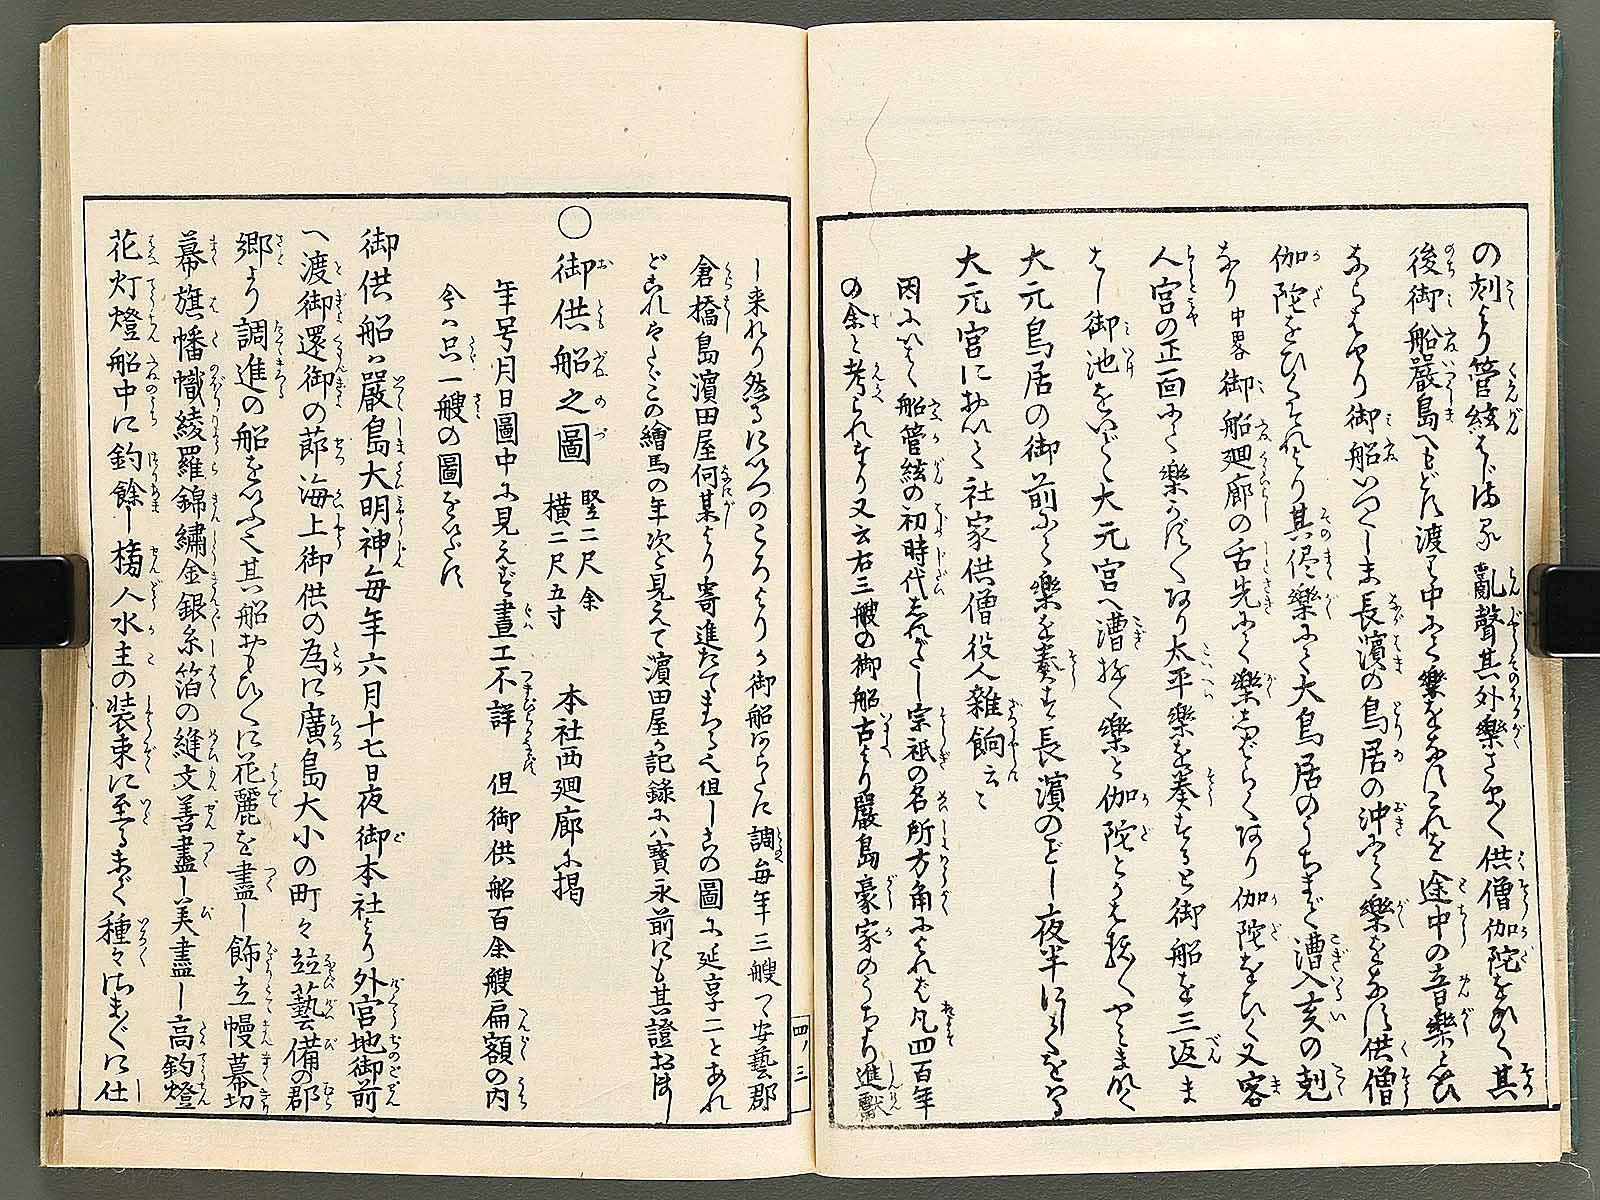 の刻より管絃はじまる 亂聲其外樂さま〴〵供僧伽陀をひく其
後御船嚴島へもどす渡る中にて樂をなすこれを途中の音樂といひ
ならはせり御船いつくしま長濱の鳥居の沖にて樂をなす供僧
伽陀をひくそれより其侭樂にて大鳥居のうちまで漕入亥の剋
なり 中畧 御船廻廊の舌先にて樂しばらくあり伽陀をひく又客
人宮の正面にて樂
太平樂を奏するに御船を三返ま
はし御池をいで大元宮へ漕
樂と伽陀と
大元鳥居の御前にて樂を奏す長濱の
夜半に
大元宮において社家供僧役人雜餉云々
因にいはく船管絃の初時代しれがたし宗祇の名所方角によれば凡四百年
の余と考られたり又云右三艘の御船古より嚴島豪家のうちより進獻
し来れり然るにいつのころよりか御船あらたに調毎年三艘つゝ安藝郡
倉橋島濱田屋何某より寄進たてまつる也但しこの圖に延享二とあれ
どこれやたゞこの繪馬の年次と見えて濱田屋が記録にハ寶永前にも其證おほし
○御供船之圖 竪二尺余 横二尺五寸 本社西廻廊に掲
年号月日圖中に見えず畫工不詳 但御供船百余艘扁額の内
今ハ只一艘の圖をいだす
御供船ハ嚴島大明神毎年六月十七日夜御本社より外宮地御前
へ渡御還御の莭海上御供の為に廣島大小の町々竝藝備の郡
郷より調進の船をいふ也其船おもひ〳〵に花麗を盡し飾立幔幕切
幕旗幡幟綾羅錦繡金銀糸箔の縫文善盡し美盡し高釣燈
花灯燈船中に釣餘し檝人水主の装束に至るまで種々さま〴〵に仕
四ノ三